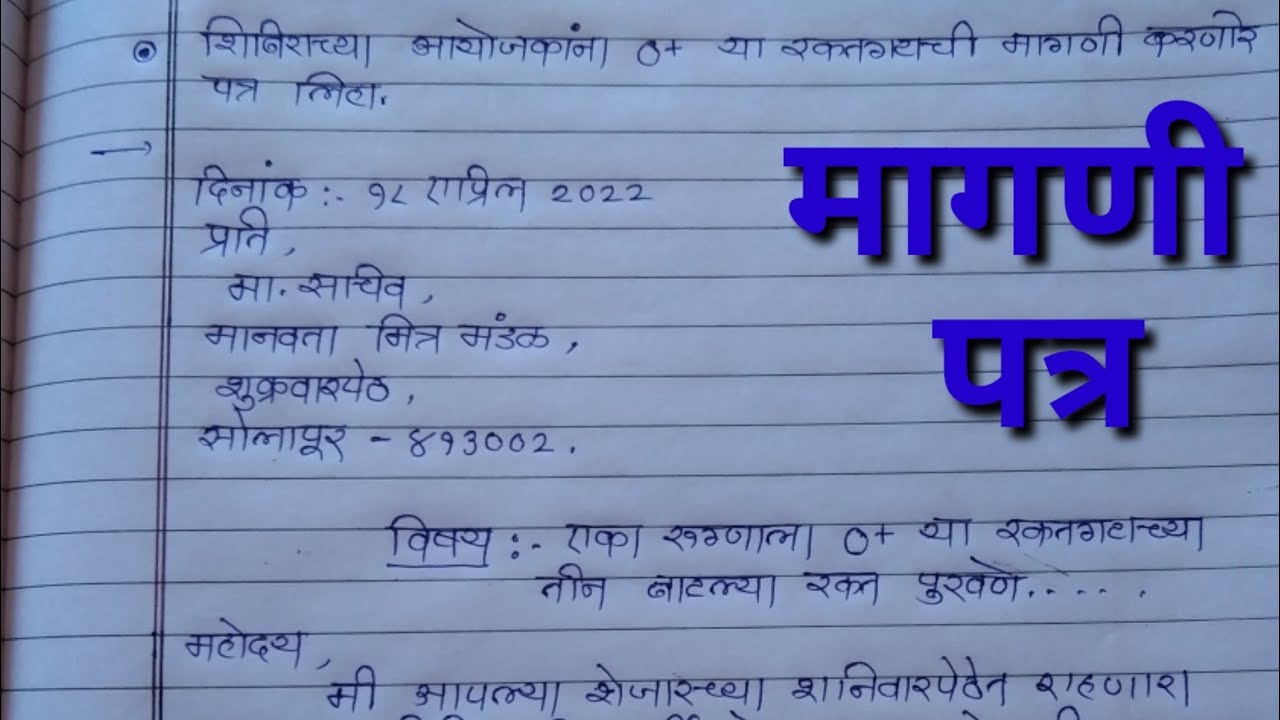 शिबिराच्या आयोजकांना O+ या रक्तगटाची मागणी करणारे
पत्र लिहा.
मागणी
पत्र
दिनांक :- १८ एप्रिल 2022
प्रति,
मा. सचिव,
मानवता मित्र मंडळ,
शुक्रवारपेठ,
सोलापूर - ४१३००२.
विषय :- एका रुग्णाला O+ या रक्तगटाच्या
तीन बाटल्या रक्त पुरवणे.....
महोदय,
मी आपल्या शेजारच्या शनिवारपेठेत राहणारा